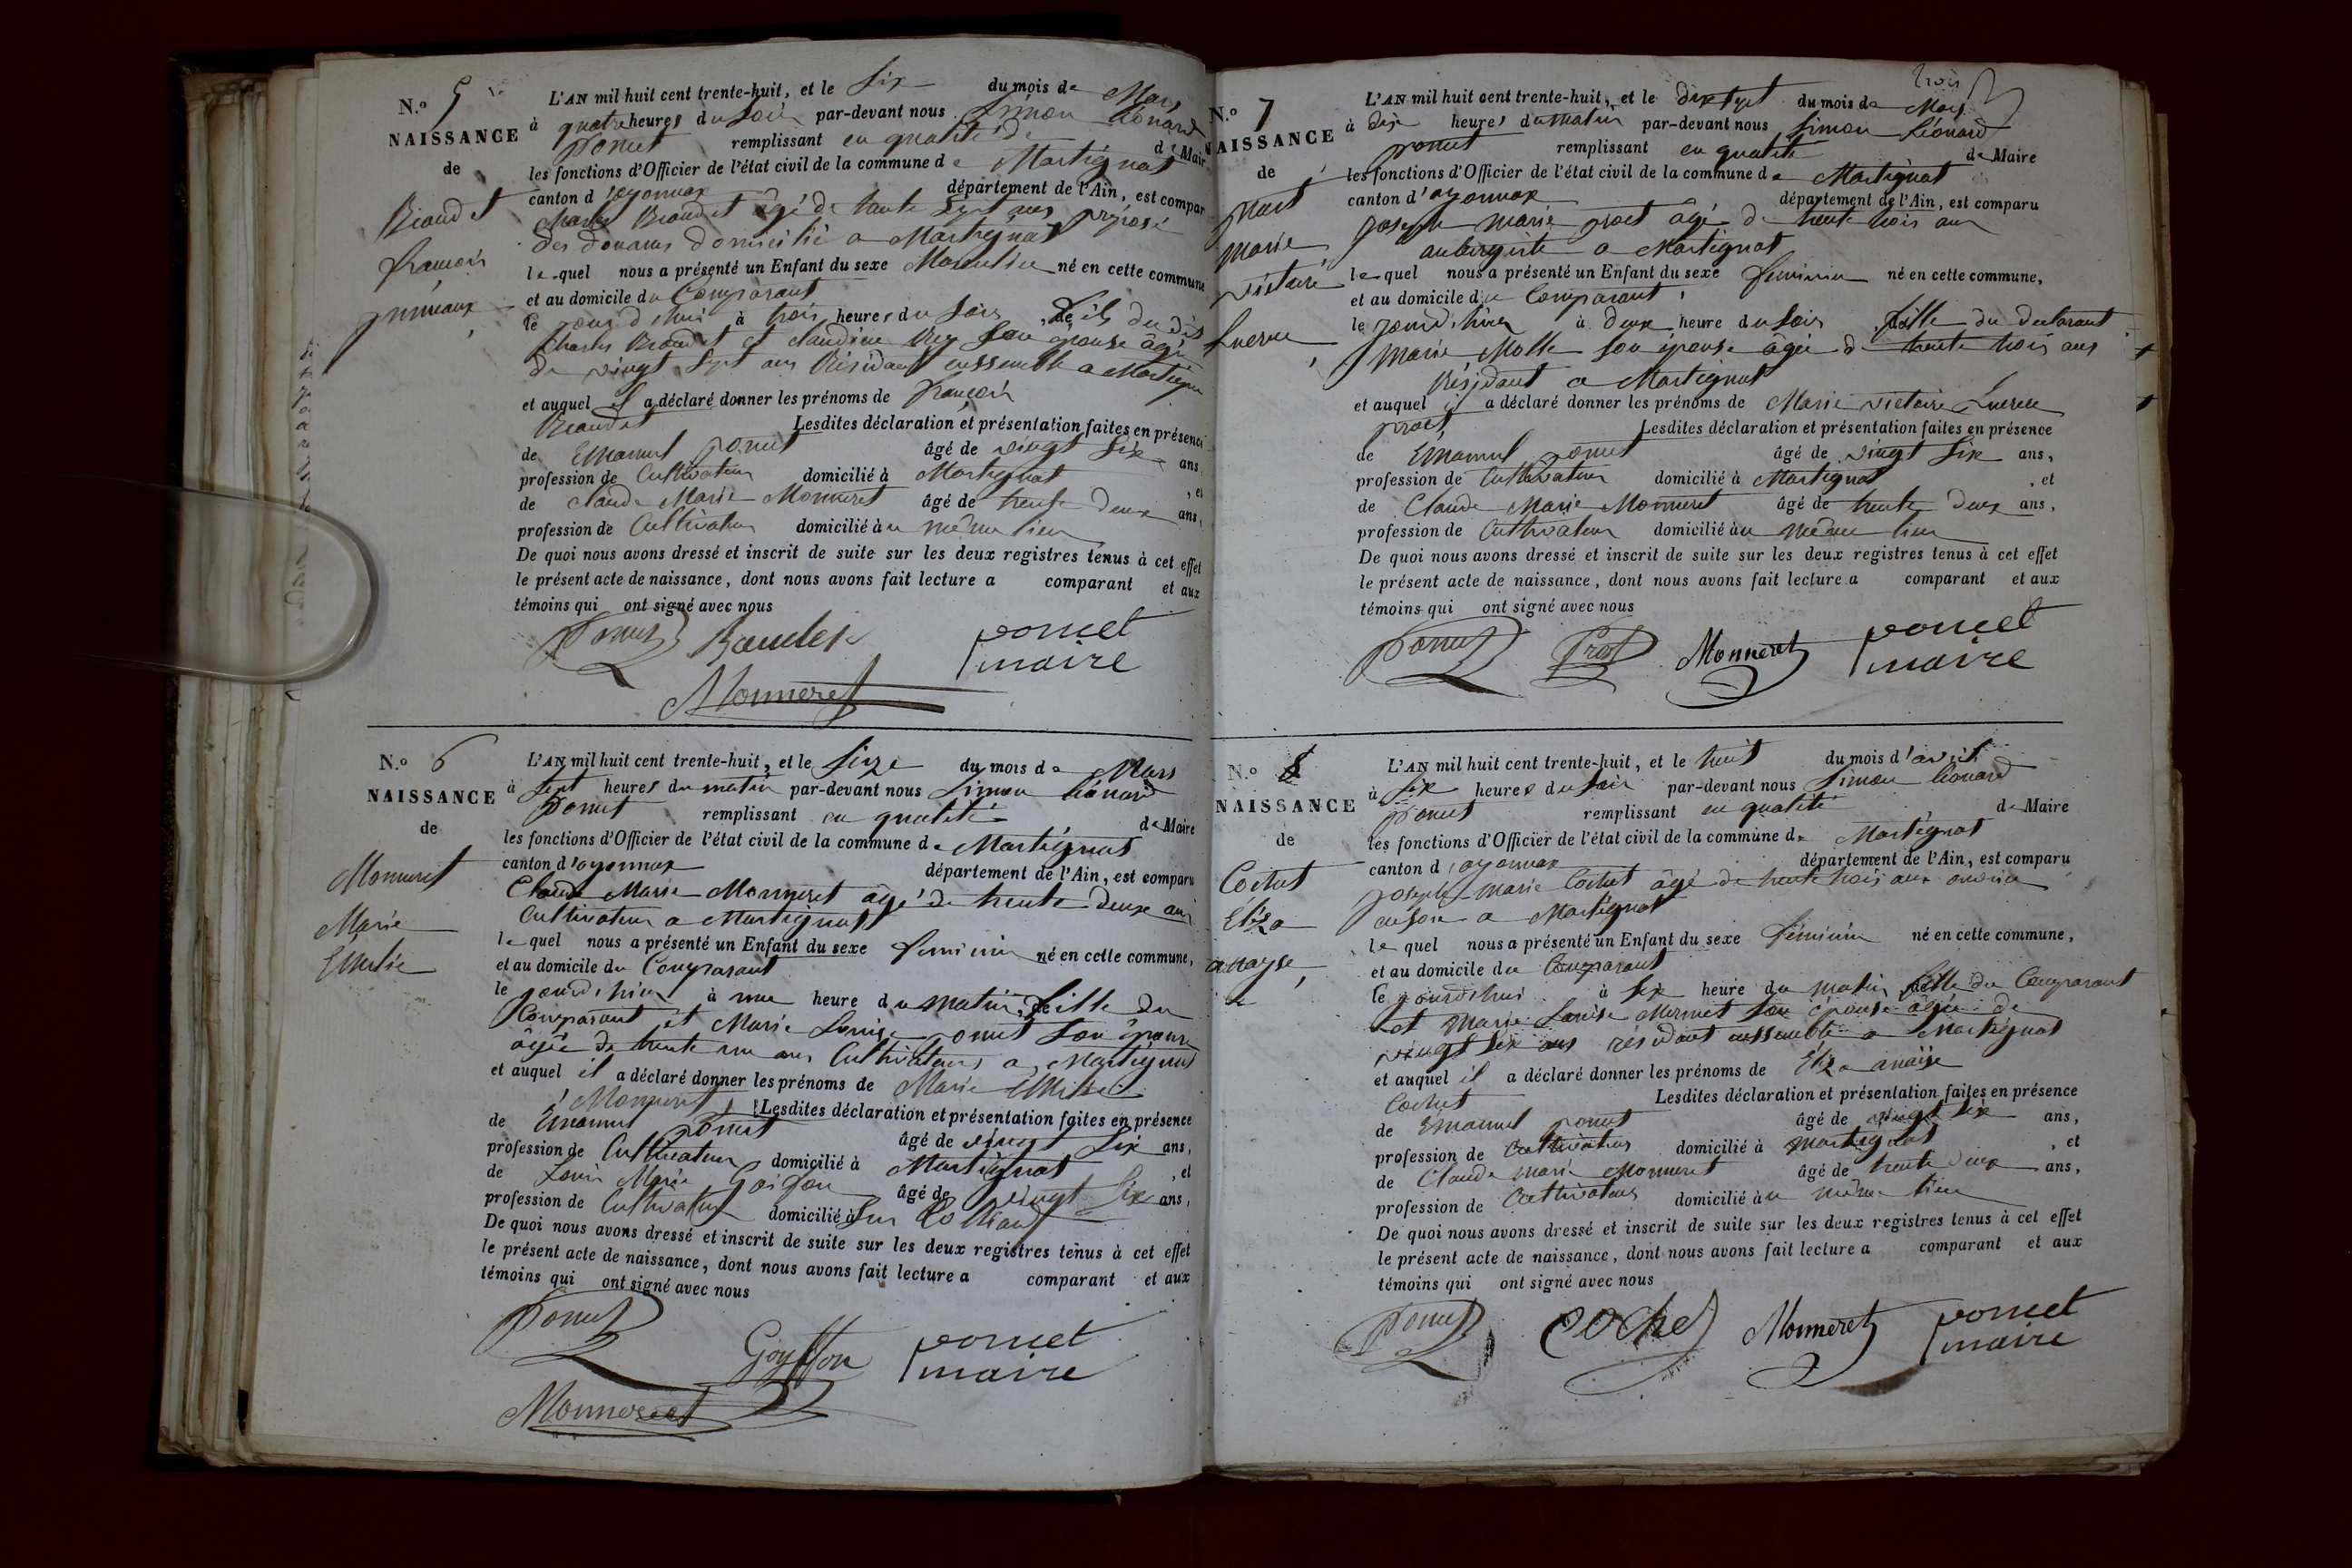 N.o 5
NAISSANCE
de
Beaudet
françois
L'AN mil huit cent trente-huit, et le Six du mois de Mars
à quatre heures du Soir par-devant nous Simon Léonard
Poncet remplissant en qualité de de Maire
les fonctions d'Officier de l'état civil de la commune de Martignat
canton d'oyonnax département de l'Ain, est comparu
Charles Beaudet âgé de trente Sept ans préposé
des douanes domicilié a Martignat
lequel nous a présenté un Enfant du sexe Masculin né en cette commune
et au domicile du Comparant
le jourd'hui à trois heures du Soir, fils du dit
Charles Beaudet et claudine Rey Son épouse âgée
de vingt Sept ans Résidant enssemble a Martignat
et auquel il a déclaré donner les prénoms de françois
Beaudet Lesdites déclaration et présentation faites en présence
de Emanuel poncet âgé de vingt Six ans,
profession de Cultivateur domicilié à Martignat , et
de claude Marie Monneret âgé de trente Deux ans,
profession de Cultivateur domicilié au même lieu
De quoi nous avons dressé et inscrit de suite sur les deux registres tenus à cet effet
le présent acte de naissance, dont nous avons fait lecture a comparant et aux
témoins qui ont signé avec nous
Poncet Baudet poncet
maire
Monneret
N.o 6
NAISSANCE
de
Monneret
Marie
Emelie
L'AN mil huit cent trente-huit, et le Seize du mois de Mars
à Sept heures du matin par-devant nous Simon Léonard
Poncet remplissant en qualité de Maire
les fonctions d'Officier de l'état civil de la commune de Martignat
canton d'oyonnax département de l'Ain, est comparu
Claude Marie Monneret âgé de trente Deux ans
Cultivateur a Martignat
lequel nous a présenté un Enfant du sexe feminin né en cette commune,
et au domicile du Comparant
le jourd'hui à une heure du matin, fille du
Comparant et Marie Louise poncet Son épouse
âgée de trente un ans Cultivateurs a Martignat
et auquel il a déclaré donner les prénoms de Marie Emelie
Monneret Lesdites déclaration et présentation faites en présence
de Emanuel Poncet âgé de vingt Six ans,
profession de Cultivateur domicilié à Martignat , et
de Louis Marie Goiffon âgé de vingt Six ans,
profession de Cultivateur domicilié à
De quoi nous avons dressé et inscrit de suite sur les deux registres tenus à cet effet
le présent acte de naissance, dont nous avons fait lecture a comparant et aux
témoins qui ont signé avec nous
Poncet Goyffon poncet
maire
Monneret
N.o 7
NAISSANCE
de
prost
marie
victoire
Lucrece
trois
L'AN mil huit cent trente-huit, et le dix Sept du mois de Mars
à dix heures du matin par-devant nous Simon Léonard
poncet remplissant en qualité de Maire
les fonctions d'Officier de l'état civil de la commune de Martignat
canton d'oyonnax département de l'Ain, est comparu
joseph marie prost âgé de trente trois ans
aubergiste a Martignat
lequel nous a présenté un Enfant du sexe feminin né en cette commune,
et au domicile du Comparant,
le jourd'hui à deux heure du Soir, fille du declarant
Marie Molle Son épouse âgée de trente trois ans
Résidant a Martignat
et auquel il a déclaré donner les prénoms de Marie victoire Lucrece
prost Lesdites déclaration et présentation faites en présence
de Emanuel poncet âgé de vingt Six ans,
profession de Cultivateur domicilié à Martignat , et
de Claude Marie Monneret âgé de trente Deux ans,
profession de Cultivateur domicilié au même lieu
De quoi nous avons dressé et inscrit de suite sur les deux registres tenus à cet effet
le présent acte de naissance, dont nous avons fait lecture a comparant et aux
témoins qui ont signé avec nous
Poncet Prost Monneret poncet
maire
N.o 8
NAISSANCE
de
Cochet
Eliza
anayse
L'AN mil huit cent trente-huit, et le huit du mois d'avril
à Six heures du Soir par-devant nous Simon Léonard
poncet remplissant en qualité de Maire
les fonctions d'Officier de l'état civil de la commune de Martignat
canton d'oyonnax département de l'Ain, est comparu
joseph marie Cochet âgé de trente trois ans ouvrier
en Soie a Martignat
lequel nous a présenté un Enfant du sexe féminin né en cette commune,
et au domicile du Comparant
le jourd'hui à Six heure du matin fille du Comparant
et Marie Louise Mermet Son épouse âgée de
vingt Six ans résidant enssemble a Martignat
et auquel il a déclaré donner les prénoms de Eliza anaïse
Cochet Lesdites déclaration et présentation faites en présence
de Emanuel poncet âgé de vingt Six ans,
profession de Cultivateur domicilié à Martignat , et
de Claude marie Monneret âgé de trente Deux ans,
profession de Cultivateur domicilié au même lieu
De quoi nous avons dressé et inscrit de suite sur les deux registres tenus à cet effet
le présent acte de naissance, dont nous avons fait lecture a comparant et aux
témoins qui ont signé avec nous
Poncet COchet Monneret poncet
maire